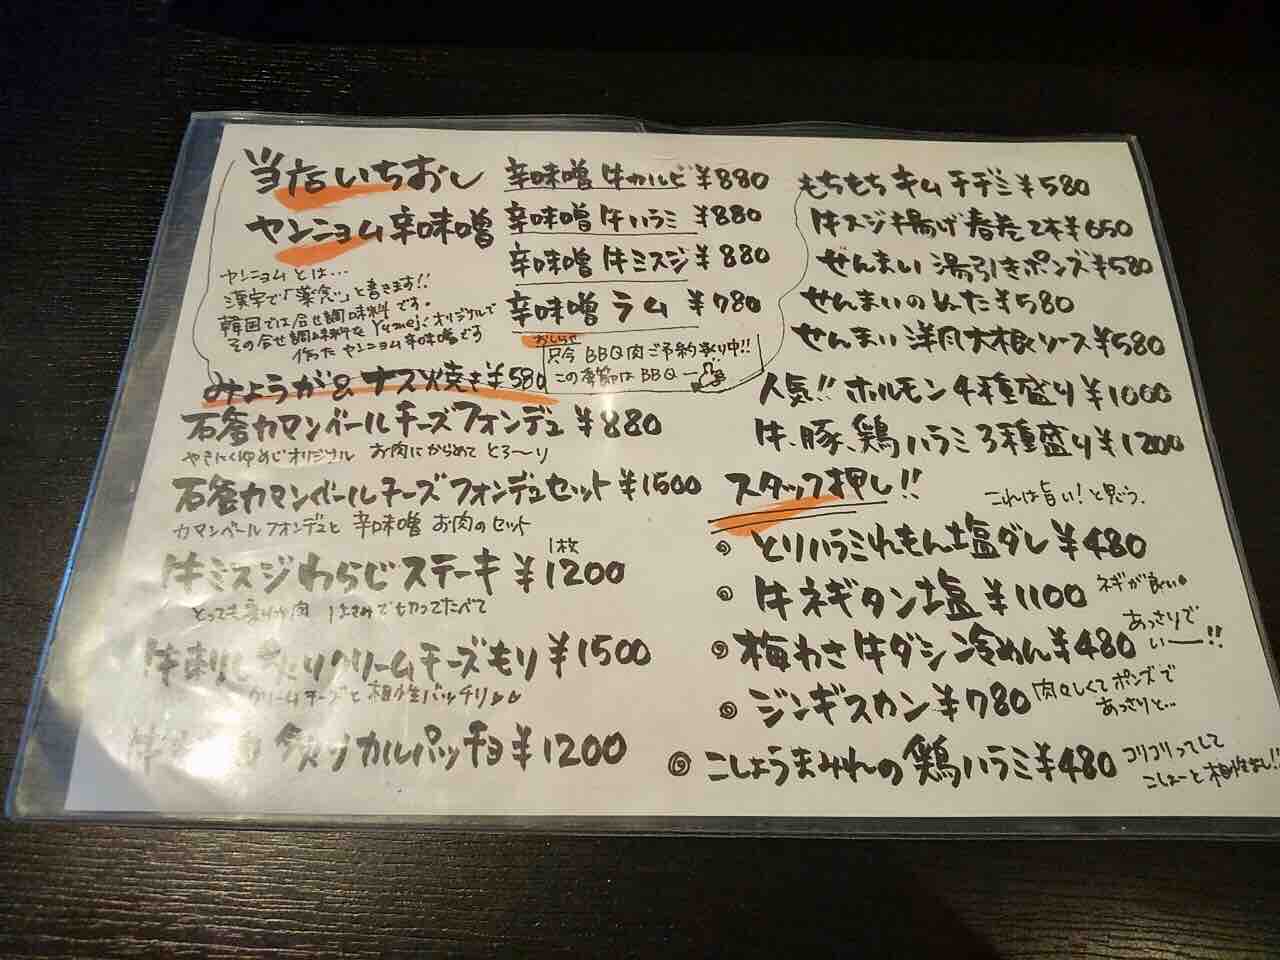 当店いちおし
ヤンニョム辛味噌
ヤンニョムとは…
漢字で「薬念」と書きます!!
韓国では合せ調味料です。
その合せ調味料をYumejiオリジナルで
作ったヤンニョム辛味噌です
辛味噌 牛カルビ ¥880
辛味噌 牛ハラミ ¥880
辛味噌 牛ミスジ ¥880
辛味噌 ラム ¥780
おしらせ
只今 BBQ肉ご予約承り中!!
この季節はBBQー
みょうが&ナス焼き¥580
石釜カマンベールチーズフォンデュ ¥880
やきにくゆめじオリジナル お肉にからめて とろ〜り
石釜カマンベールチーズフォンデュセット ¥1500
カマンベールフォンデュと 辛味噌 お肉のセット
牛ミスジわらじステーキ 1枚 ¥1200
とっても 肉 はさみで切ってたべて
牛刺し炙りクリームチーズもり ¥1500
クリームチーズと相性バッチリ
牛 炙りカルパッチョ ¥1200
もちもちキムチヂミ ¥580
牛スジ揚げ春巻2本¥650
ぜんまい 湯引きポンズ¥580
せんまいのぬた ¥580
せんまい 洋風大根ソース¥580
人気!! ホルモン4種盛り ¥1000
牛、豚、鶏ハラミ3種盛り ¥1200
スタッフ押し!!
これは旨い!と思う。
とりハラミれもん塩ダレ ¥480
牛ネギタン塩 ¥1100 ネギが良い。
梅わさ牛ダシ冷めん ¥480 あっさりで
いーー!!
ジンギスカン ¥780 肉々しくてポンズで
あっさりと…
こしょうまみれの鶏ハラミ¥480 コリコリってして
こしょーと相性よし!!